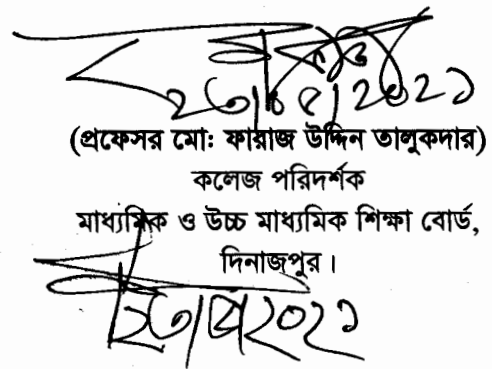 (প্রফেসর মো: ফারাজ উদ্দিন তালুকদার)
কলেজ পরিদর্শক
মাধ্যমিক ও উচ্চ মাধ্যমিক শিক্ষা বোর্ড,
দিনাজপুর।